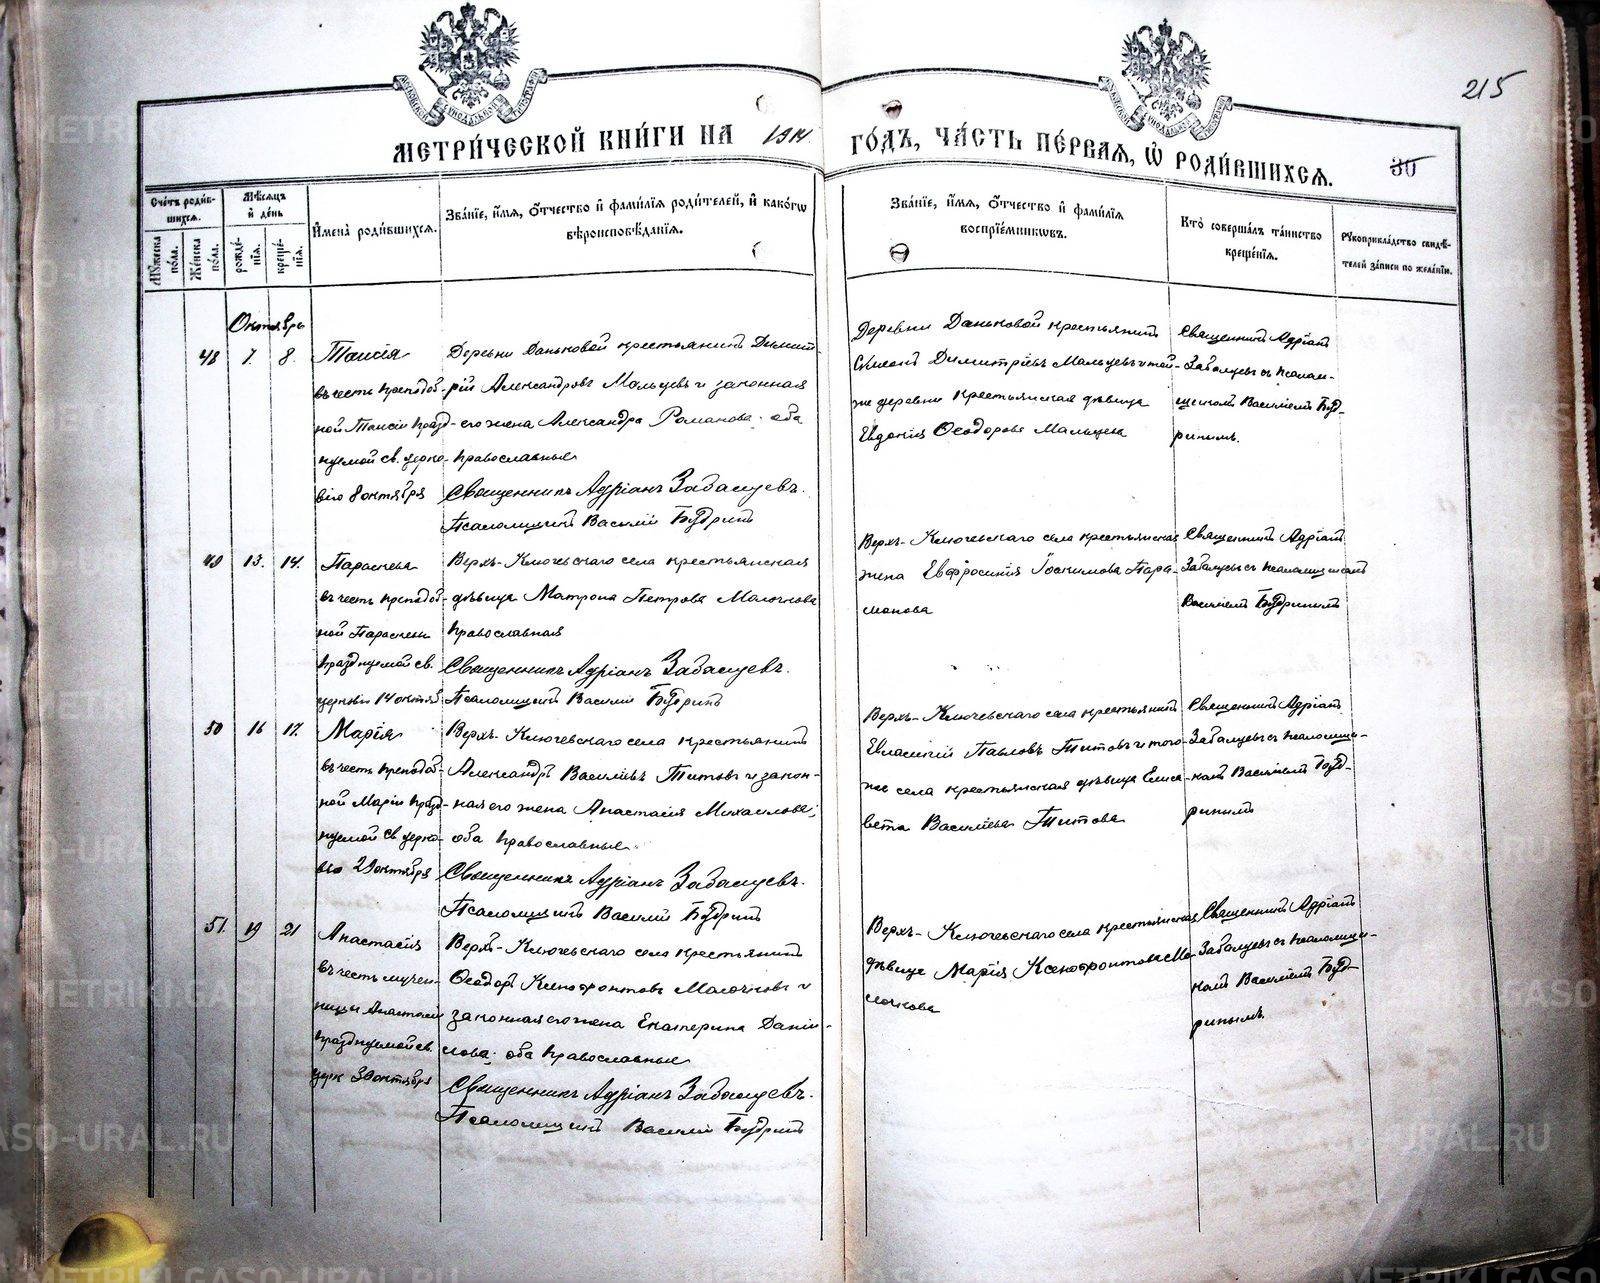 215
МЕТРИ́ЧЕСКОЙ КНИ́ГИ НА 1911 ГО́ДЪ, ЧА́СТЬ ПЕ́РВАЯ, Ѡ РОДИ́ВШИХСЯ.
30
Сче́тъ роди́в-
шихся.
Мѣ́сяцъ
и де́нь
Имена̀ роди́вшихся.
Зва́нїе, и́мя, о́тчество и фами́лїя роди́телей, и како́гѡ
вѣроисповѣ́данїя.
Зва́нїе, и́мя, о́тчество и фами́лїя
воспрїе́мниковъ.
Кто̀ соверша́лъ та́инство
креще́нїя.
Рукоприкла́дство свидѣ́-
телей за́писи по жела́нїю.
Му́жеска
по́ла.
Же́нска
по́ла.
рожде́-
нїя.
креще́-
нїя.
Октябрь
48 7. 8. Таисія
въ честь преподоб-
ной Таисіи празд-
нуемой св. церко-
вію 8 октября
Деревни Даньковой крестьянинъ Димит-
рій Александровъ Мальцевъ и законная
его жена Александра Романова. оба
православные
Священникъ Адріанъ Забалуевъ.
Псаломщикъ Василій Будринъ
Деревни Даньковой крестьянинъ
Симеонъ Димитріевъ Мальцевъ и той-
же деревни крестьянская дѣвица
Евдокія Ѳеодорова Мальцева
Священникъ Адріанъ
Забалуевъ съ псалом-
щикомъ Василіемъ Буд-
ринымъ.
49 13. 14. Параскева
въ честь преподоб-
ной Параскевы
празднуемой св.
церковію 14 октяб
Верхъ-Ключевскаго села крестьянская
дѣвица Матрона Петрова Молочкова
православная
Священникъ Адріанъ Забалуевъ.
Псаломщикъ Василій Будринъ
Верхъ-Ключевскаго села крестьянская
жена Евфросинія Іоакимова Пара-
монова
Священникъ Адріанъ
Забалуевъ съ псаломщикомъ
Василіемъ Будринымъ
50 16 17. Марія
въ честь преподоб-
ной Маріи празд-
нуемой св. церко-
вію 29 октября
Верхъ-Ключевскаго села крестьянинъ
Александръ Васильевъ Титовъ и закон-
ная его жена Анастасія Михаилова;
оба православные
Священникъ Адріанъ Забалуевъ.
Псаломщикъ Василій Будринъ
Верхъ-Ключевскаго села крестьянинъ
Евлампій Павловъ Титовъ и того-
же села крестьянская дѣвица Елиса-
вета Васильева Титова
Священникъ Адріанъ
Забалуевъ съ псаломщи-
комъ Василіемъ Буд-
ринымъ
51. 19 21 Анастасія
въ честь мучен-
ницы Анастасіи
празднуемой св.
церк 30 октября
Верхъ-Ключевскаго села крестьянинъ
Ѳеодоръ Ксенофонтовъ Молочковъ и
законная его жена Екатерина Дании-
лова; оба православные
Священникъ Адріанъ Забалуевъ.
Псаломщикъ Василій Будринъ
Верхъ-Ключевскаго села крестьянская
дѣвица Марія Ксенофонтова Мо-
лочкова
Священникъ Адріанъ
Забалуевъ съ псаломщи-
комъ Василіемъ Буд-
ринымъ.